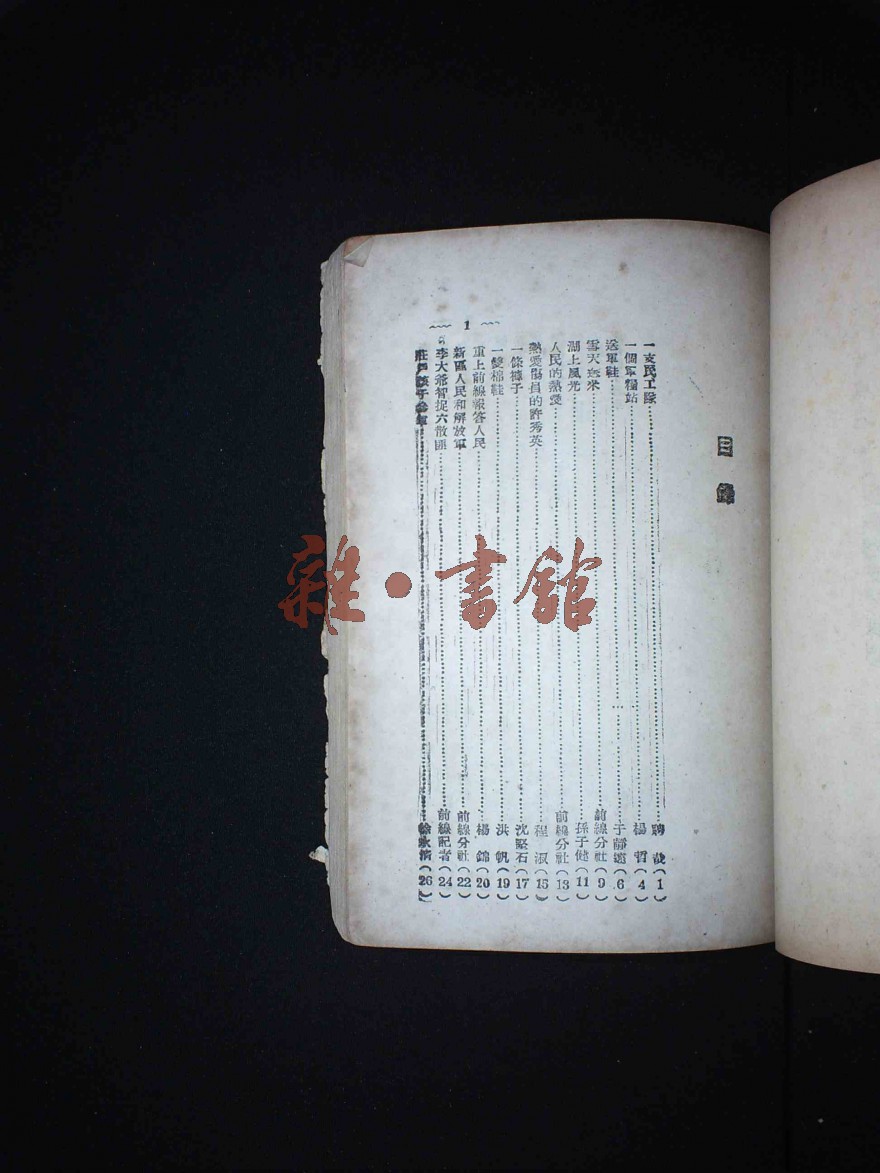 目錄
一支民工隊……(1)
一個軍糧站……楊哲(4)
送軍鞋……于靜(6)
雪天送米……前線分社(9)
湖上風光……孫子健(11)
人民的熱愛……前線分社(13)
熱愛傷員的許秀英……程淑(15)
一條褲子……沈堅石(17)
一雙棉鞋……洪帆(19)
重上前線報答人民……楊錦(20)
新區人民和解放軍……前線分社(22)
李大爺智捉六散匪……前線記者(24)
莊戶孩子參軍……徐(26)
1
雜·書館